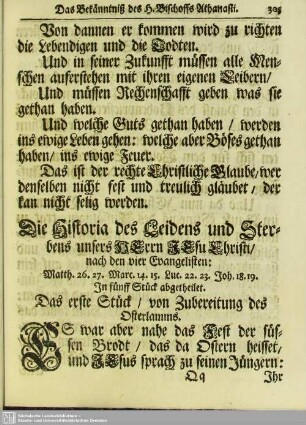 Das Bekänntniß des H. Bischoffs Athanasii. 305
Von dannen er kommen wird zu richten
die Lebendigen und die Todten.
Und in seiner Zukunfft müssen alle Men-
schen auferstehen mit ihren eigenen Leibern/
Und müssen Rechenschafft geben was sie
gethan haben.
Und welche Guts gethan haben / werden
ins ewige Leben gehen: welche aber Böses gethan
haben/ ins ewige Feuer.
Das ist der rechte Christliche Glaube/ wer
denselben nicht fest und treulich gläubet/ der
kan nicht selig werden.
Die Historia des Leidens und Ster-
bens unsers HErrn JEsu Christi/
nach den vier Evangelisten:
Matth. 26. 27. Marc. 14. 15. Luc. 22. 23. Joh. 18. 19.
In fünff Stück abgetheilet.
Das erste Stück / von Zubereitung des
Osterlamms.
ES war aber nahe das Fest der süs-
sen Brodt / das da Ostern heisset/
und JEsus sprach zu seinen Jüngern:
Qq Ihr
Sächsische Landesbibliothek -
Staats- und Universitätsbibliothek Dresden